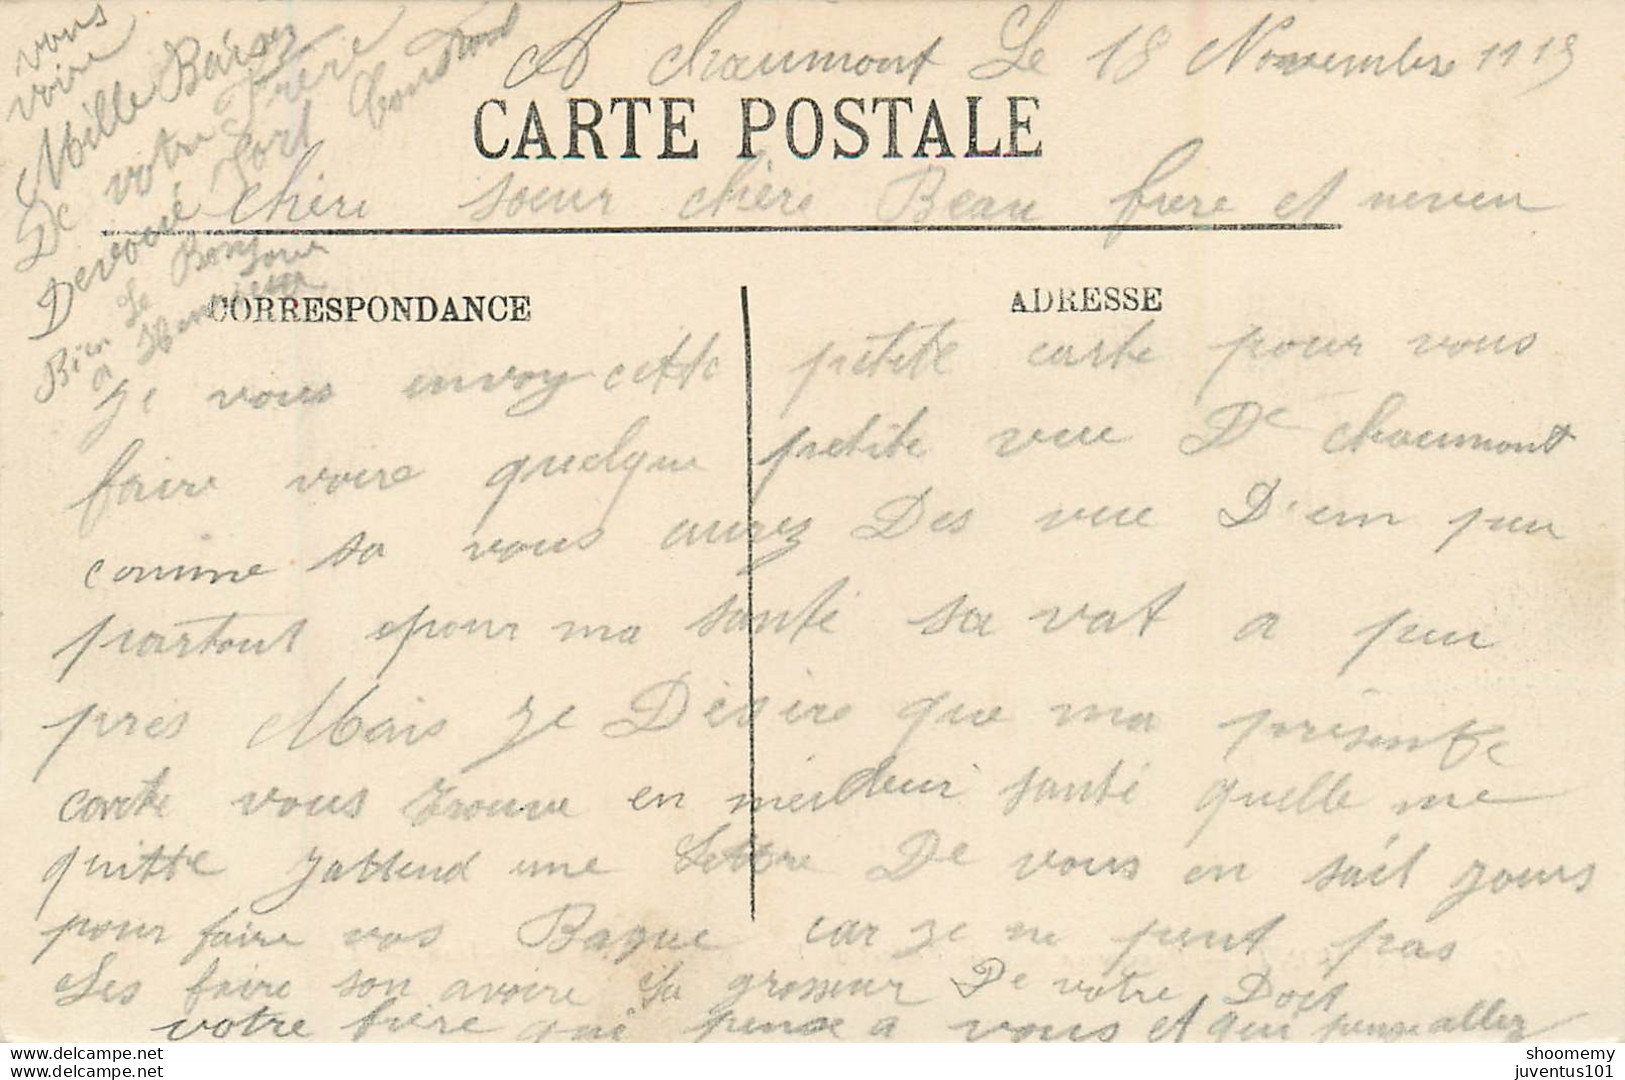 A Chaumont Le 18 Novembre 1915
CARTE POSTALE
chère soeur chère Beau frere et neveu
CORRESPONDANCE
ADRESSE
je vous envoy cette petite carte pour vous
faire voire quelque petite vue De chaumont
comme sa vous aurez Des vue D'un peu
partout epour ma santé sa vat a peu
pres Mais je Désire que ma présente
carte vous trouve en meilleur santé quelle me
quitte j'attend une Lettre De vous en sait jours
pour faire vos Bague car je ne peut pas
Les faire son avoire La grosseur De votre Doit
votre frere qui pense a vous et qui pense allez
vous
voire
Mille Baisez
De votre Frere
Devoué
Le Bonjour
Bien a Henriette
delcampe.net
Bien delcampe.net
shoomemy
juventus101